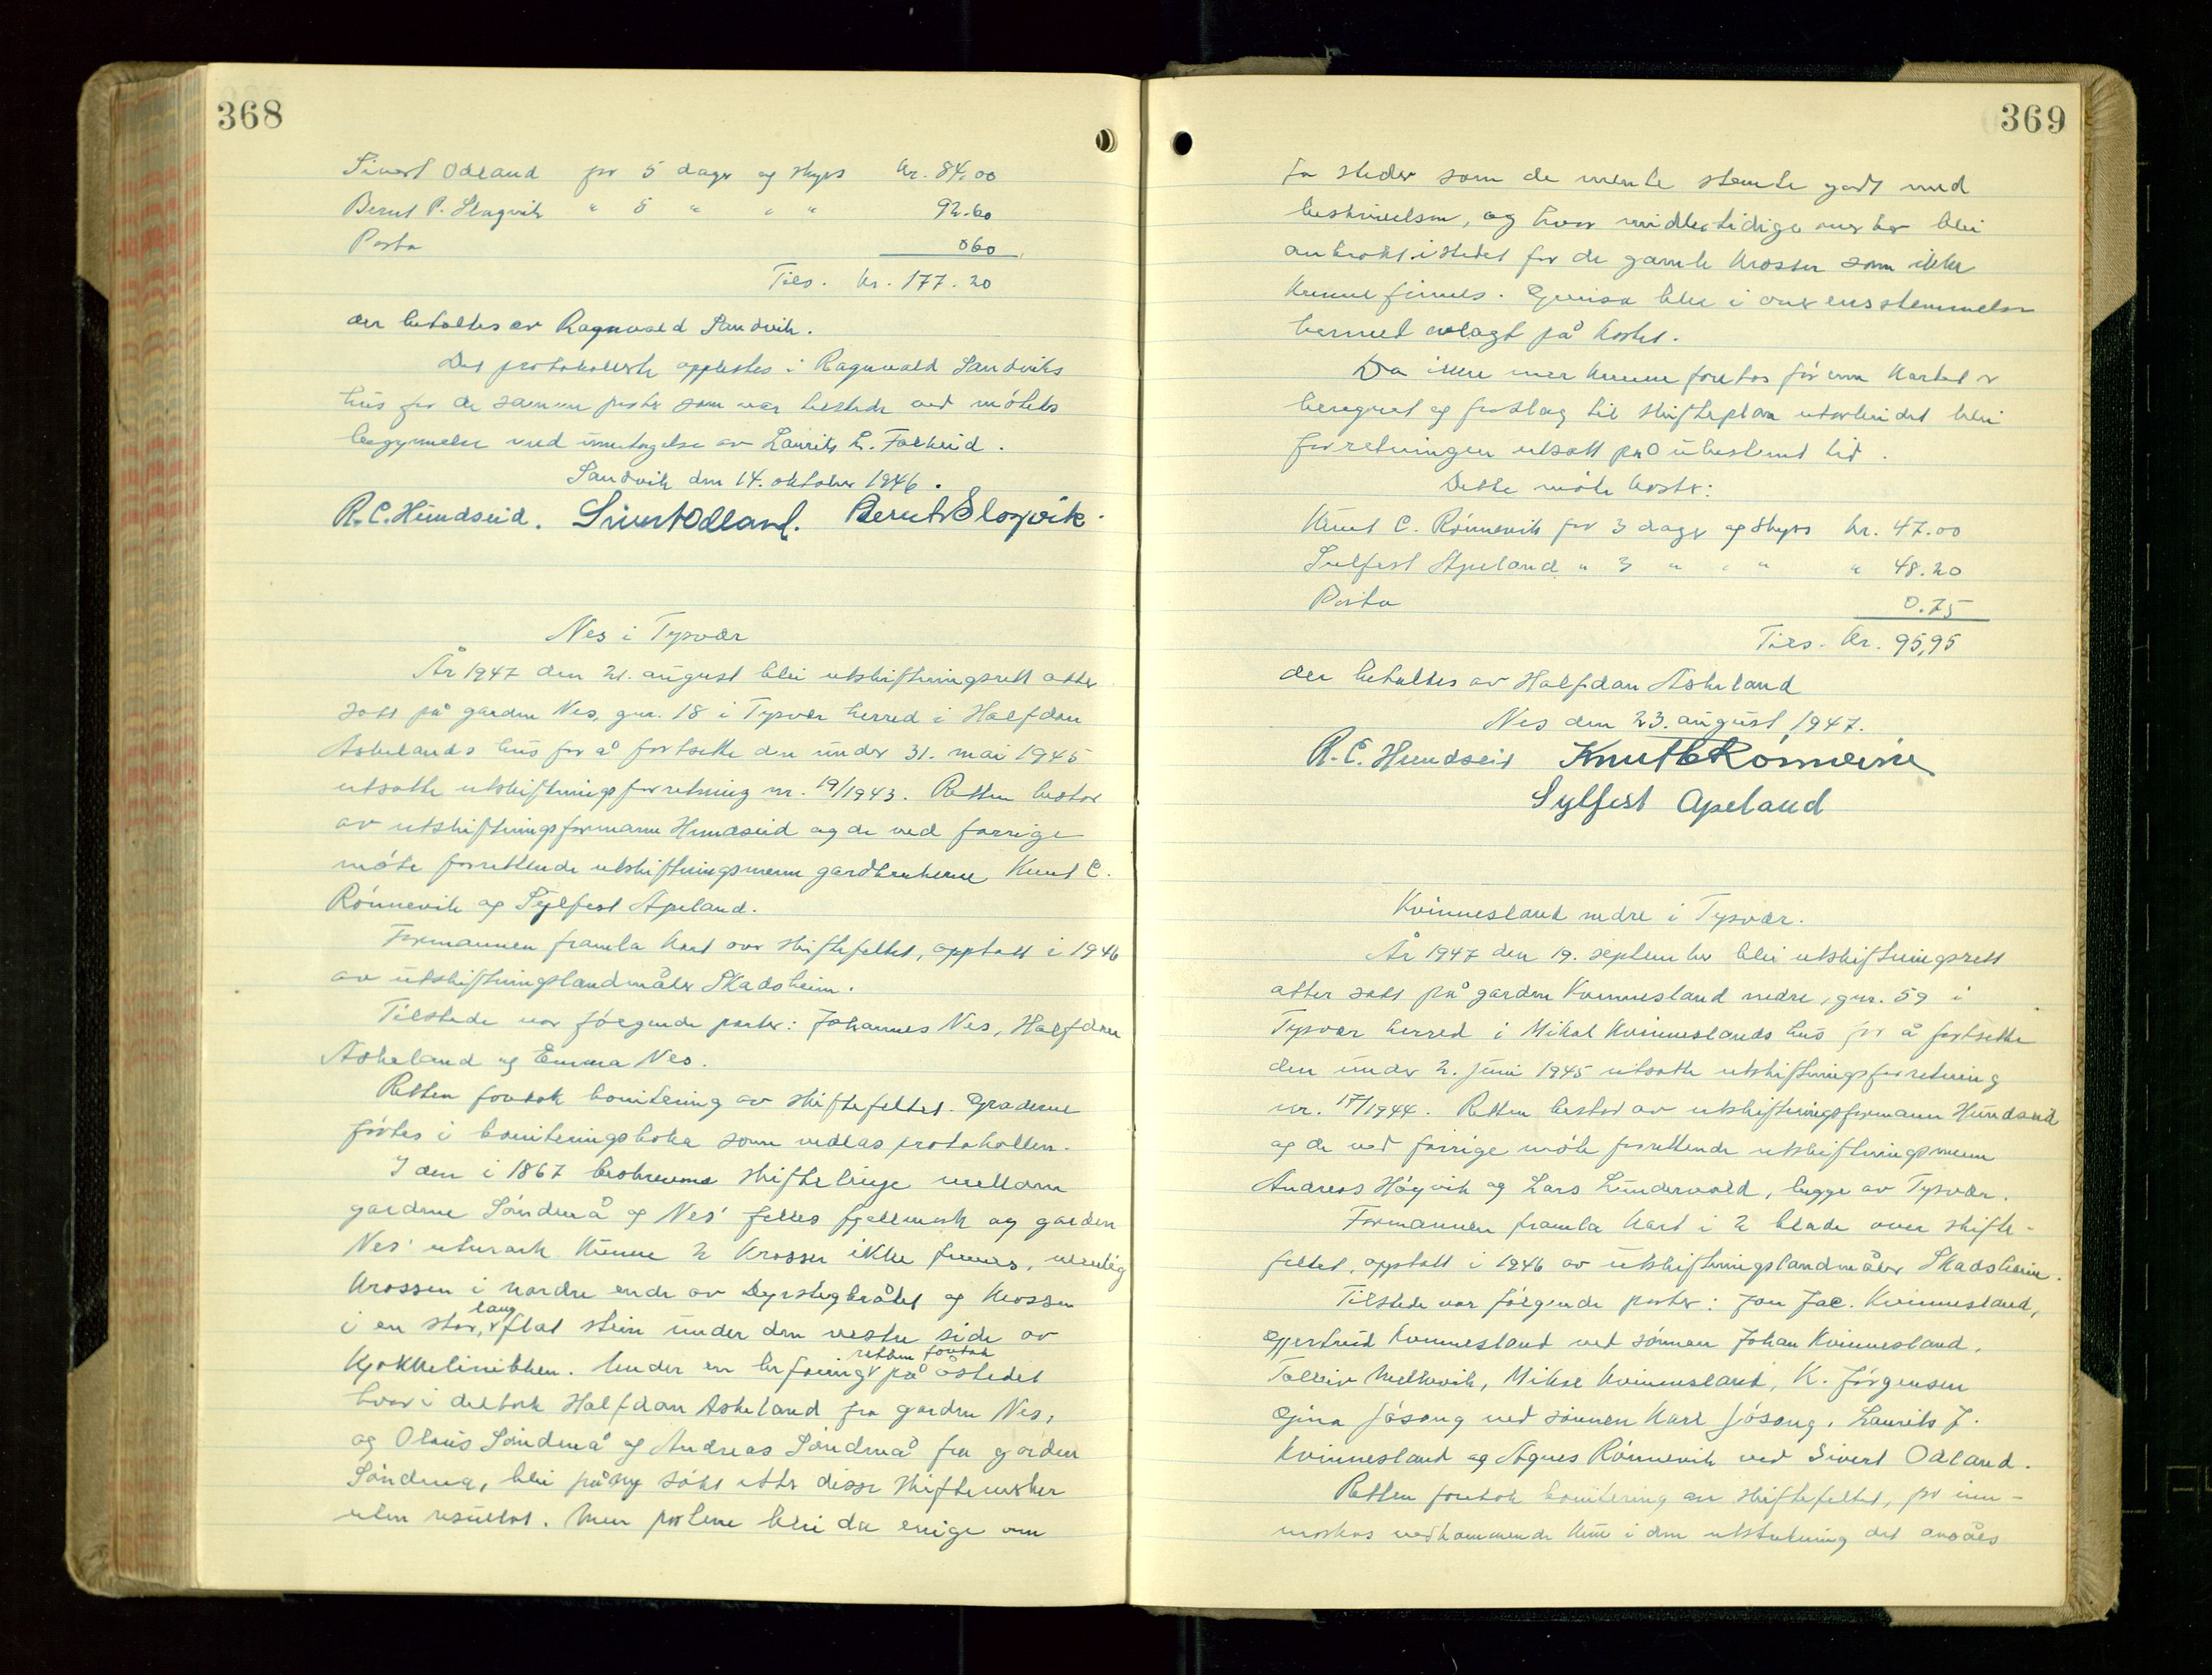 368
Sivert Odland for 5 dager og skyss kr. 84.00
Bernt P. Slogvik " 5 " " " 92.60
Porto 060
Tils. kr. 177.20
der betaltes av Ragnvald Sandvik.
Det protokollerte opplestes i Ragnvald Sandviks
hus for de samme parter som var tilstede ved møtets
begynnelse med unntagelse av Laurits L. Falkeid.
Sandvik den 14. oktober 1946.
R. C. Hundseid. Sivert Odland. Bernt Slogvik.
Nes i Tysvær
År 1947 den 21. august blei utskiftningsrett atter
satt på garden Nes, gnr. 18 i Tysvær herred i Halfdan
Askelands hus for å fortsette den under 31. mai 1945
utsatte utskiftningsforretning nr. 19/1943. Retten bestod
av utskiftningsformann Hundseid og de ved forrige
møte forrettende utskiftningsmenn gardbrukerne Knut C.
Rønnevik og Sylfest Apeland.
Formannen framla kart over skiftefeltet, opptatt i 1946
av utskiftningslandmåler Skadsheim.
Tilstede var følgende parter: Johannes Nes, Halfdan
Askeland og Emma Nes.
Retten foretok bonitering av skiftefeltet. Graderne
førtes i boniteringsboka som vedlas protokollen.
I den i 1867 beskrevne skiftelinje mellom
gardene Søndenå og Nes' felles fjellmark og garden
Nes' utmark kunne 2 krosser ikke finnes, nemlig
krossen i nordre ende av Dyrstegbråtet og krossen
i en stor, lang flat stein under den vestre side av
Kjokkelinibben. Under en befaring retten foretok på åstedet
hvor i deltok Halfdan Askeland fra garden Nes,
og Olaus Søndenå og Andreas Søndenå fra garden
Søndenå, blei på ny søkt etter disse skiftemerker
uten resultat. Men partene blei da enige om
369
to steder som de mente stemte godt med
beskrivelsen, og hvor midlertidige merker blei
anbrakt istedet for de gamle krosser som ikke
kunne finnes. Grensa blei i overensstemmelse
hermed avlagt på kartet.
Da ikke mer kunne foretas før enn kartet er
beregnet og forslag til skifteplan utarbeidet blei
forretningen utsatt på ubestemt tid.
Dette møte koster:
Knut C. Rønnevik for 3 dager og skyss kr. 47.00
Sylfest Apeland " 3 " " " " 48.20
Porto 0.75
Tils. kr. 95,95
der betaltes av Halfdan Askeland
Nes den 23. august 1947.
R. C. Hundseid Knut C Rønnevik
Sylfest Apeland
Kvinnesland nedre i Tysvær.
År 1947 den 19. september blei utskiftningsrett
atter satt på garden Kvinnesland nedre, gnr. 59 i
Tysvær herred i Mikal Kvinneslands hus for å fortsette
den under 2. juni 1945 utsatte utskiftningsforretning
nr. 17/1944. Retten bestod av utskiftningsformann Hundseid
og de ved forrige møte forrettende utskiftningsmenn
Andreas Høgvik og Lars Lundervold, begge av Tysvær.
Formannen framla kart i 2 blade over skifte-
feltet, opptatt i 1946 av utskiftningslandmåler Skadsheim.
Tilstede var følgende parter: Jon Jac. Kvinnesland,
Gjertrud Kvinnesland ved sønnen Johan Kvinnesland,
Tolleiv Mellovik, Mikal Kvinnesland, K. Jørgensen
Gina Jøsang ved sønnen Karl Jøsang, Laurits J.
Kvinnesland og Agnes Rønnevik ved Sivert Odland.
Retten foretok bonitering av skiftefeltet, for inn-
markas vedkommende kun i den utstrekning det ansåes